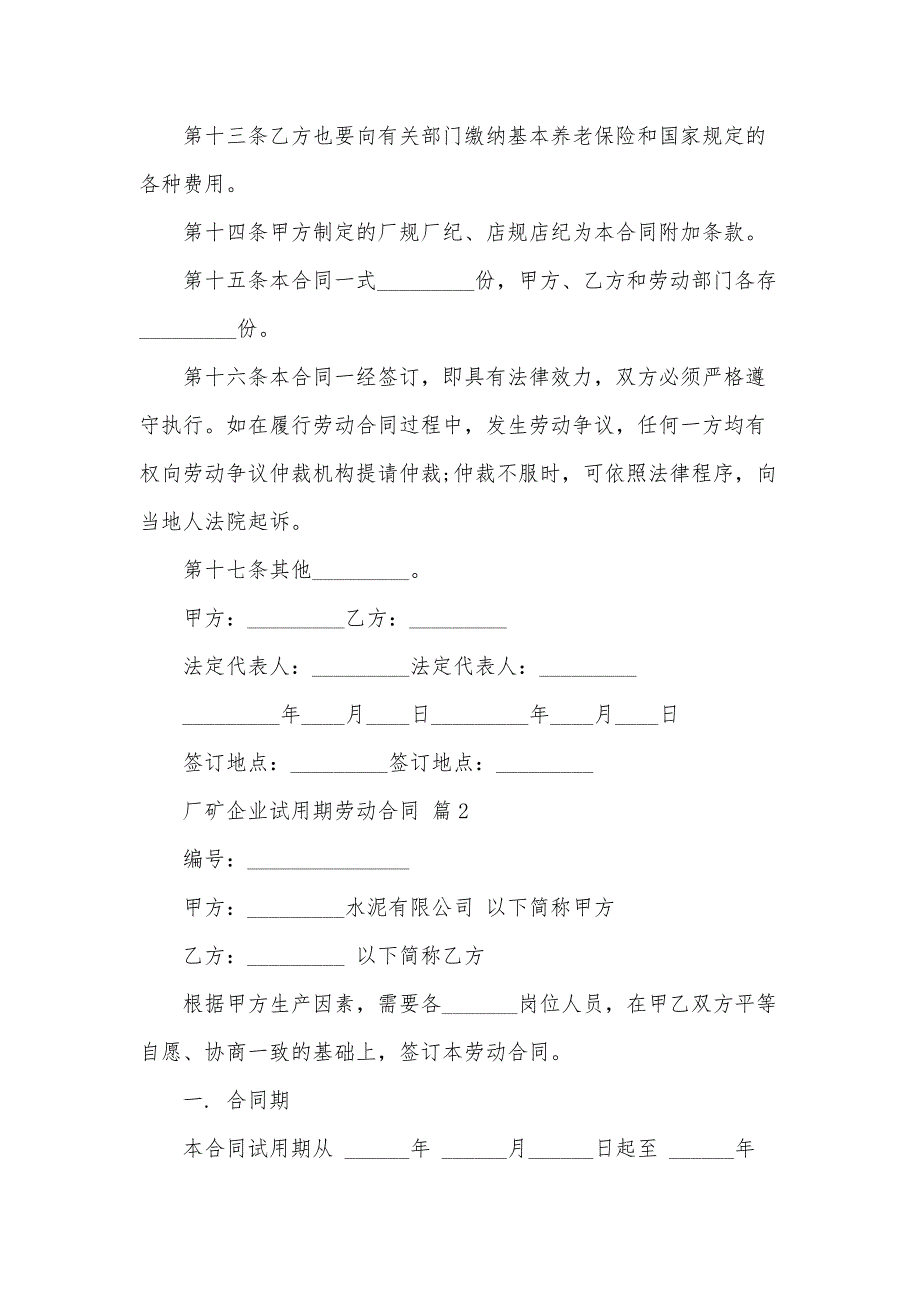 第十三条乙方也要向有关部门缴纳基本养老保险和国家规定的
各种费用。
第十四条甲方制定的厂规厂纪、店规店纪为本合同附加条款。
第十五条本合同一式_________份，甲方、乙方和劳动部门各存
_________份。
第十六条本合同一经签订，即具有法律效力，双方必须严格遵
守执行。如在履行劳动合同过程中，发生劳动争议，任何一方均有
权向劳动争议仲裁机构提请仲裁;仲裁不服时，可依照法律程序，向
当地人法院起诉。
第十七条其他_________。
甲方：_________乙方：_________
法定代表人：_________法定代表人：_________
_________年____月____日_________年____月____日
签订地点：_________签订地点：_________
厂矿企业试用期劳动合同 篇2
编号：_______________
甲方：_________水泥有限公司 以下简称甲方
乙方：_________ 以下简称乙方
根据甲方生产因素，需要各_______岗位人员，在甲乙双方平等
自愿、协商一致的基础上，签订本劳动合同。
一. 合同期
本合同试用期从 ______年 ______月______日起至 ______年